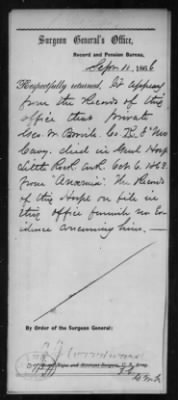 Surgeon General's Office,
Record and Pension Bureau,
Sept 11, 1866
Respectfully returned. It appears
from the Records of this
office that Private
Geo. M. Co. K. 5" Mo
Cavy. died in Genl Hosp
Little Rock Ark Oct 6, 1863
from "Anaemia". The Records
of this Hosp on file in
this office furnish no Ev-
idence concerning him.—
By Order of the Surgeon General:
Surgeon and Assistant Surgeon, U. S. Army.